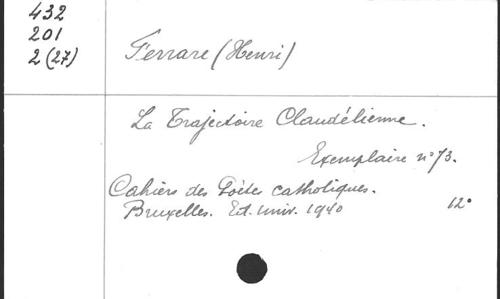 432
201
2 (27)
Ferrare (Henri)
La Trajectoire Claudélienne.
Exemplaire n° 73.
Cahiers des Poètes catholiques.
Bruxelles. Ed. univ. 1940 12°